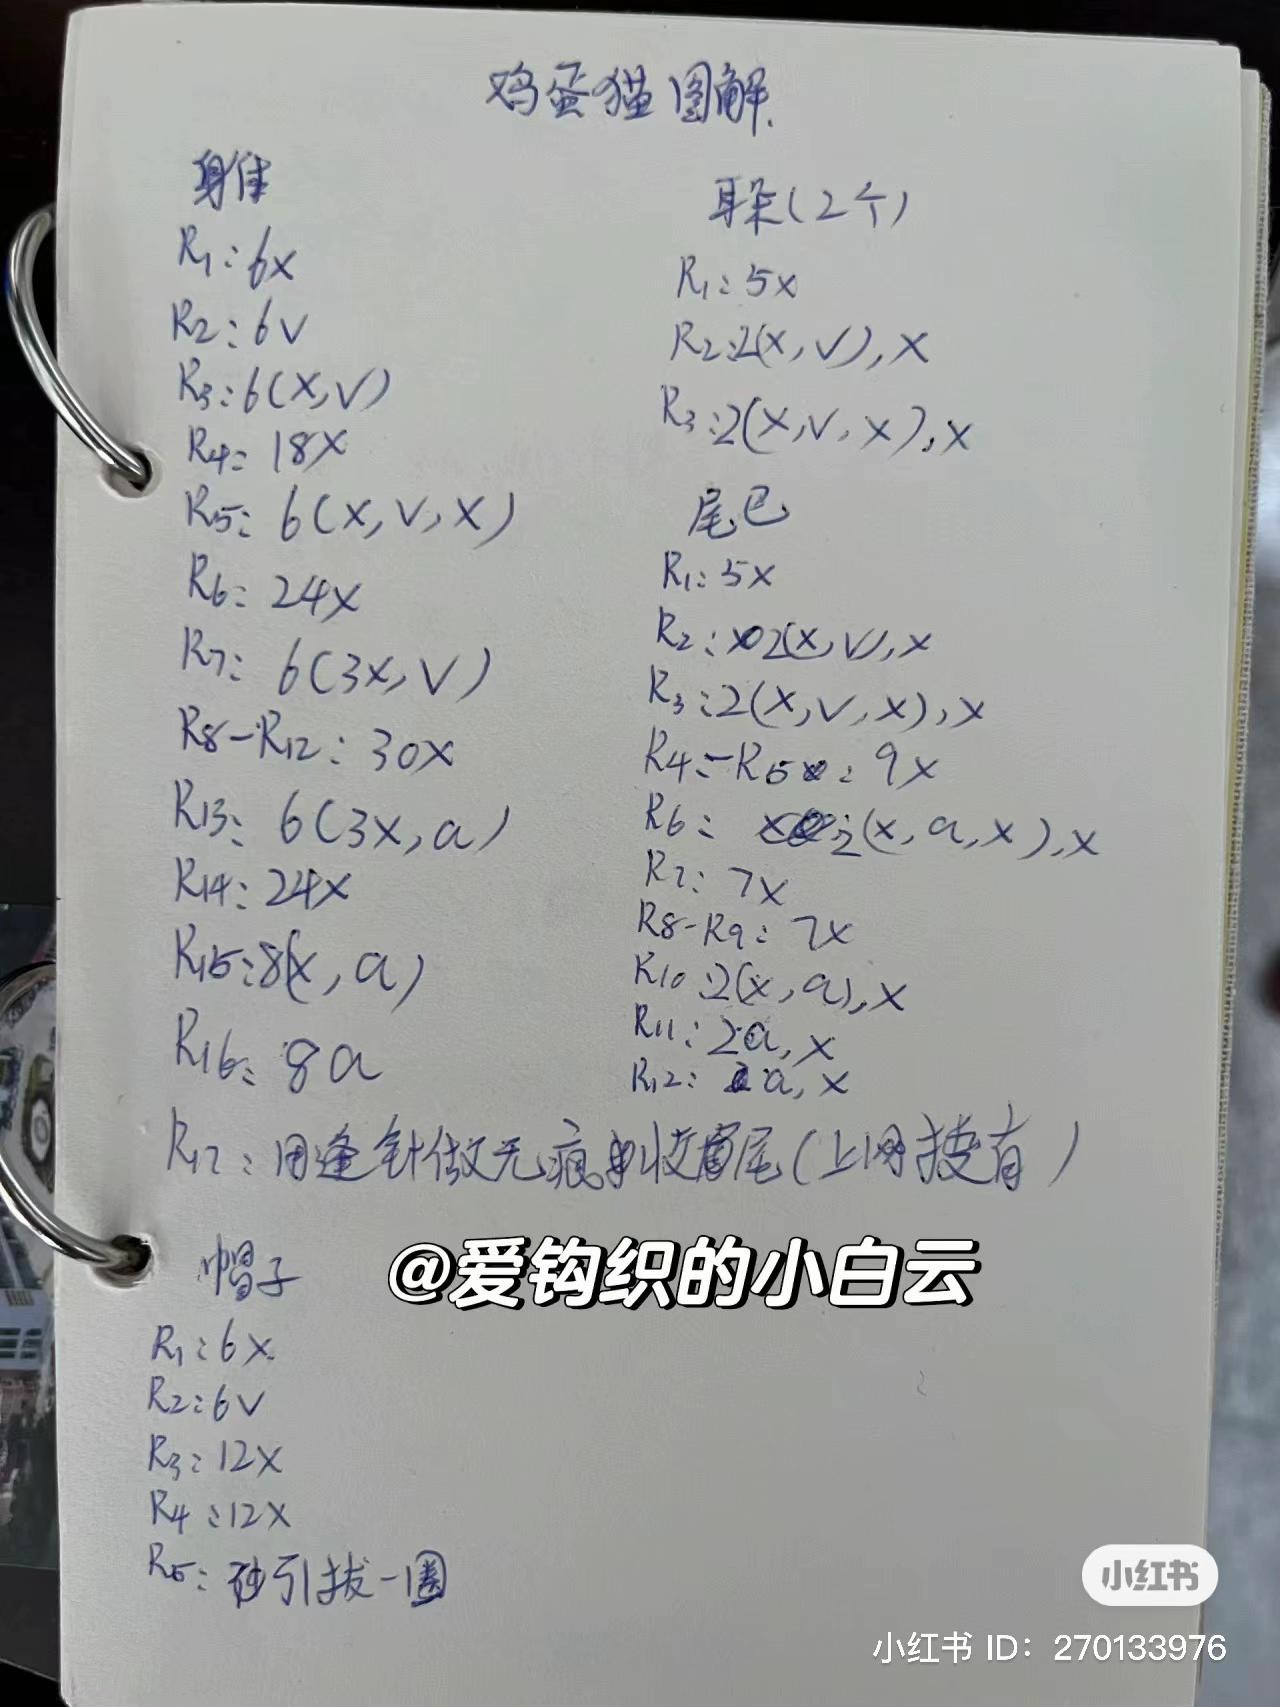 鸡蛋猫图解
身体
R1:6X
R2:6V
R3:6(X,V)
R4:18X
R5:6(X,V,X)
R6:24X
R7:6(3X,V)
R8-R12:30X
R13:6(3X,a)
R14:24X
R15:8(X,a)
R16:8a
耳朵(2个)
R1:5X
R2:2(X,V),X
R3:2(X,V,X),X
尾巴
R1:5X
R2:2(X,V),X
R3:2(X,V,X),X
R4-R5:9X
R6:2(X,a,X),X
R7:7X
R8-R9:7X
R10:2(X,a),X
R11:2a,X
R12:a,X
R17:用逢针做无痕收尾(上网搜有)
帽子
R1:6X
R2:6V
R3:12X
R4:12X
R5:引拔一圈
@爱钩织的小白云
小红书
小红书 ID:270133976